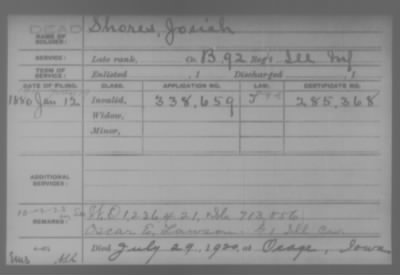 DEAD
NAME OF SOLDIER: Shores, Josiah
SERVICE: Late rank, Co. B, 92 Reg't Ill Inf
TERM OF SERVICE: Enlisted , 1 Discharged , 1
DATE OF FILING. CLASS. APPLICATION NO. LAW. CERTIFICATE NO.
1880 Jan 12 Invalid, 338,659 285,368
Widow,
Minor,
ADDITIONAL SERVICES:
REMARKS: 713,056
Oscar E. Lawson Ill Cav.
Died July 29, 1920, at Osage, Iowa